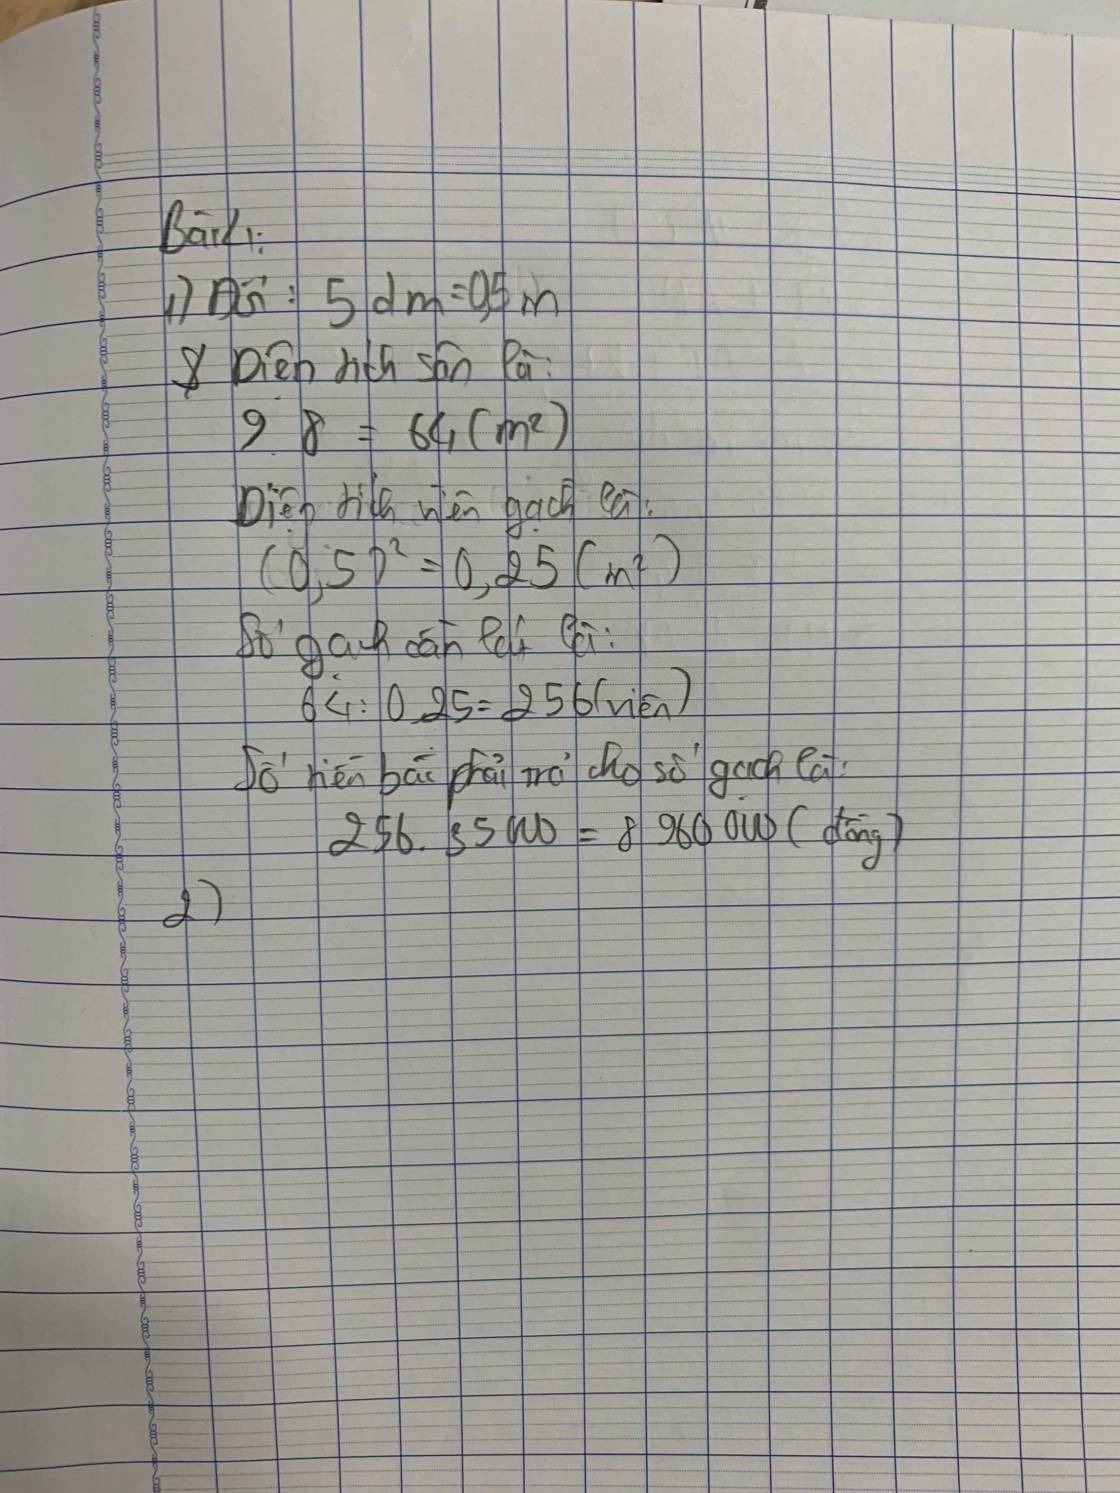 Bài 4:
1) Đổi : 5 dm = 0,5 m
Diện tích sân là:
9 8 = 64 (m²)
Diện tích viên gạch là:
(0,5)² = 0,25 (m²)
Số gạch cần lát là:
64 : 0,25 = 256 (viên)
Số tiền bác phải trả cho số gạch là:
256. 35 000 = 8 960 000 (đồng)
2)